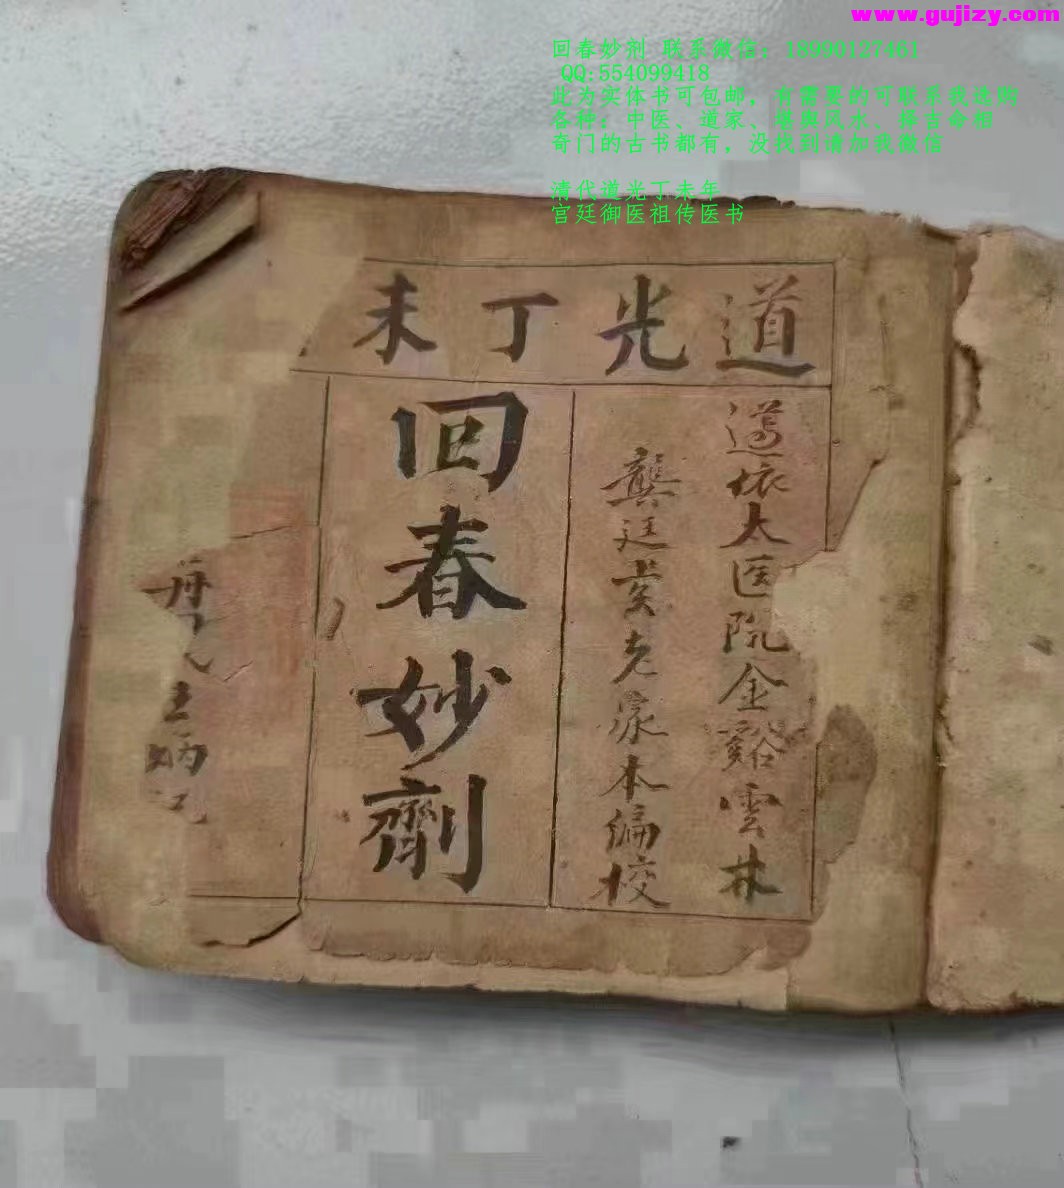 www.gujizy.com
回春妙剂 联系微信：18990127461
QQ:554099418
此为实体书可包邮，有需要的可联系我选购
各种：中医、道家、堪舆风水、择吉命相
奇门的古书都有，没找到请加我微信
清代道光丁未年
宫廷御医祖传医书
道光丁未
遵依太医院金谿雲林
龔廷賢老家本編校
回春妙劑